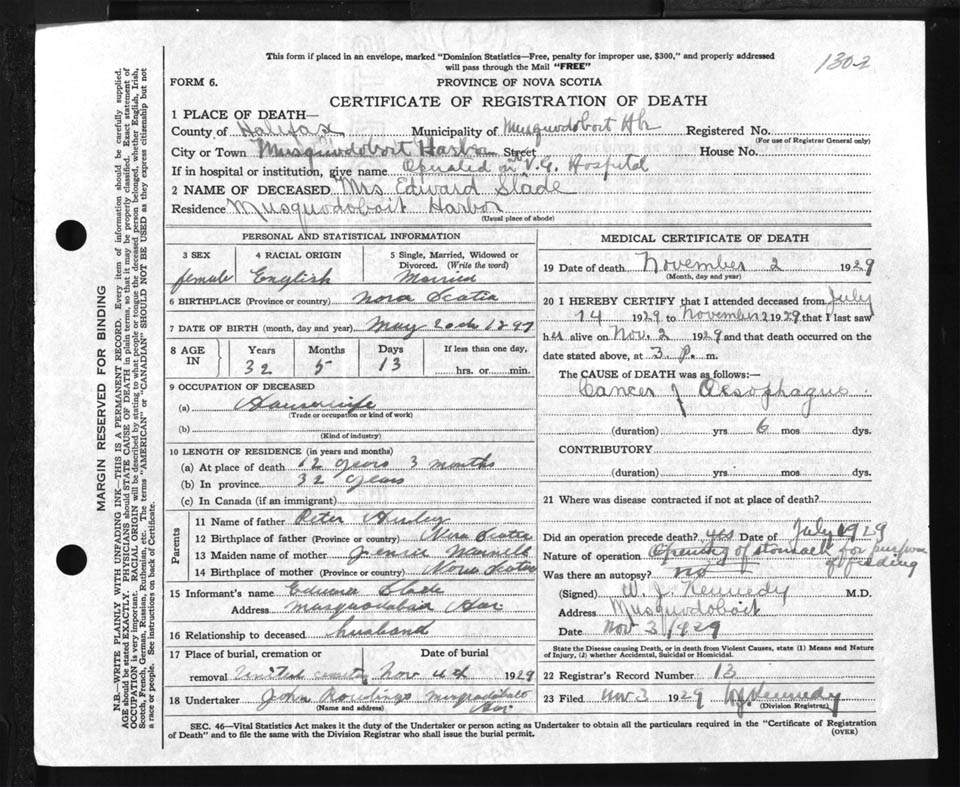 This form if placed in an envelope, marked "Dominion Statistics—Free, penalty for improper use, $300," and properly addressed
will pass through the Mail "FREE"
1302
FORM 6.
PROVINCE OF NOVA SCOTIA
CERTIFICATE OF REGISTRATION OF DEATH
1 PLACE OF DEATH—
County of Halifax Municipality of Musquodoboit Hb Registered No.
(For use of Registrar General only)
City or Town Musquodoboit Harbor Street House No.
If in hospital or institution, give name Operated on at V.G. Hospital
2 NAME OF DECEASED Mrs Edward Slade
Residence Musquodoboit Harbor
(Usual place of abode)
PERSONAL AND STATISTICAL INFORMATION
3 SEX 4 RACIAL ORIGIN 5 Single, Married, Widowed or
Divorced. (Write the word)
female English Married
6 BIRTHPLACE (Province or country) Nova Scotia
7 DATE OF BIRTH (month, day and year) May 20th 1897
8 AGE IN Years Months Days If less than one day,
32 5 13 hrs. or min.
9 OCCUPATION OF DECEASED
(a) Housewife
(Trade or occupation or kind of work)
(b)
(Kind of industry)
10 LENGTH OF RESIDENCE (in years and months)
(a) At place of death 12 years 3 months
(b) In province 32 years
(c) In Canada (if an immigrant)
Parents
11 Name of father Peter
12 Birthplace of father (Province or country) Nova Scotia
13 Maiden name of mother Jennie
14 Birthplace of mother (Province or country) Nova Scotia
15 Informant's name Edward Slade
Address Musquodoboit Har
16 Relationship to deceased husband
17 Place of burial, cremation or Date of burial
removal Nov 4th 1929
18 Undertaker John Rowlings Musquodoboit
Har
(Name and address)
MEDICAL CERTIFICATE OF DEATH
19 Date of death November 2 1929
(Month, day and year)
20 I HEREBY CERTIFY that I attended deceased from July
14 1929 to November 2 1929 that I last saw
her alive on Nov. 2 1929 and that death occurred on the
date stated above, at 3 P. m.
The CAUSE of DEATH was as follows:—
Cancer of Oesophagus
(duration) yrs 6 mos dys.
CONTRIBUTORY
(duration) yrs. mos. dys.
21 Where was disease contracted if not at place of death?
Did an operation precede death? yes Date of July 1929
Nature of operation Opening of stomach for purpose
of feeding
Was there an autopsy? no
(Signed) W. J. Kennedy M.D.
Address Musquodoboit
Date Nov 3 1929
State the Disease causing Death, or in death from Violent Causes, state (1) Means and Nature
of Injury, (2) whether Accidental, Suicidal or Homicidal.
22 Registrar's Record Number 13
23 Filed Nov 3 1929 WJ Kennedy
(Division Registrar)
SEC. 46—Vital Statistics Act makes it the duty of the Undertaker or person acting as Undertaker to obtain all the particulars required in the "Certificate of Registration
of Death" and to file the same with the Division Registrar who shall issue the burial permit.
(OVER)
MARGIN RESERVED FOR BINDING
N.B.—WRITE PLAINLY WITH UNFADING INK—THIS IS A PERMANENT RECORD. Every item of information should be carefully supplied.
AGE should be stated EXACTLY. PHYSICIANS should STATE CAUSE OF DEATH in plain terms, so that it may be properly classified. Exact statement of
OCCUPATION is very important. RACIAL ORIGIN will be described by stating to what people or tongue the deceased person belonged, whether English, Irish,
Scotch, French, German, Russian, Ruthenian, etc. The terms "AMERICAN" or "CANADIAN" SHOULD NOT BE USED as they express citizenship but not
a race or people. See instructions on back of Certificate.